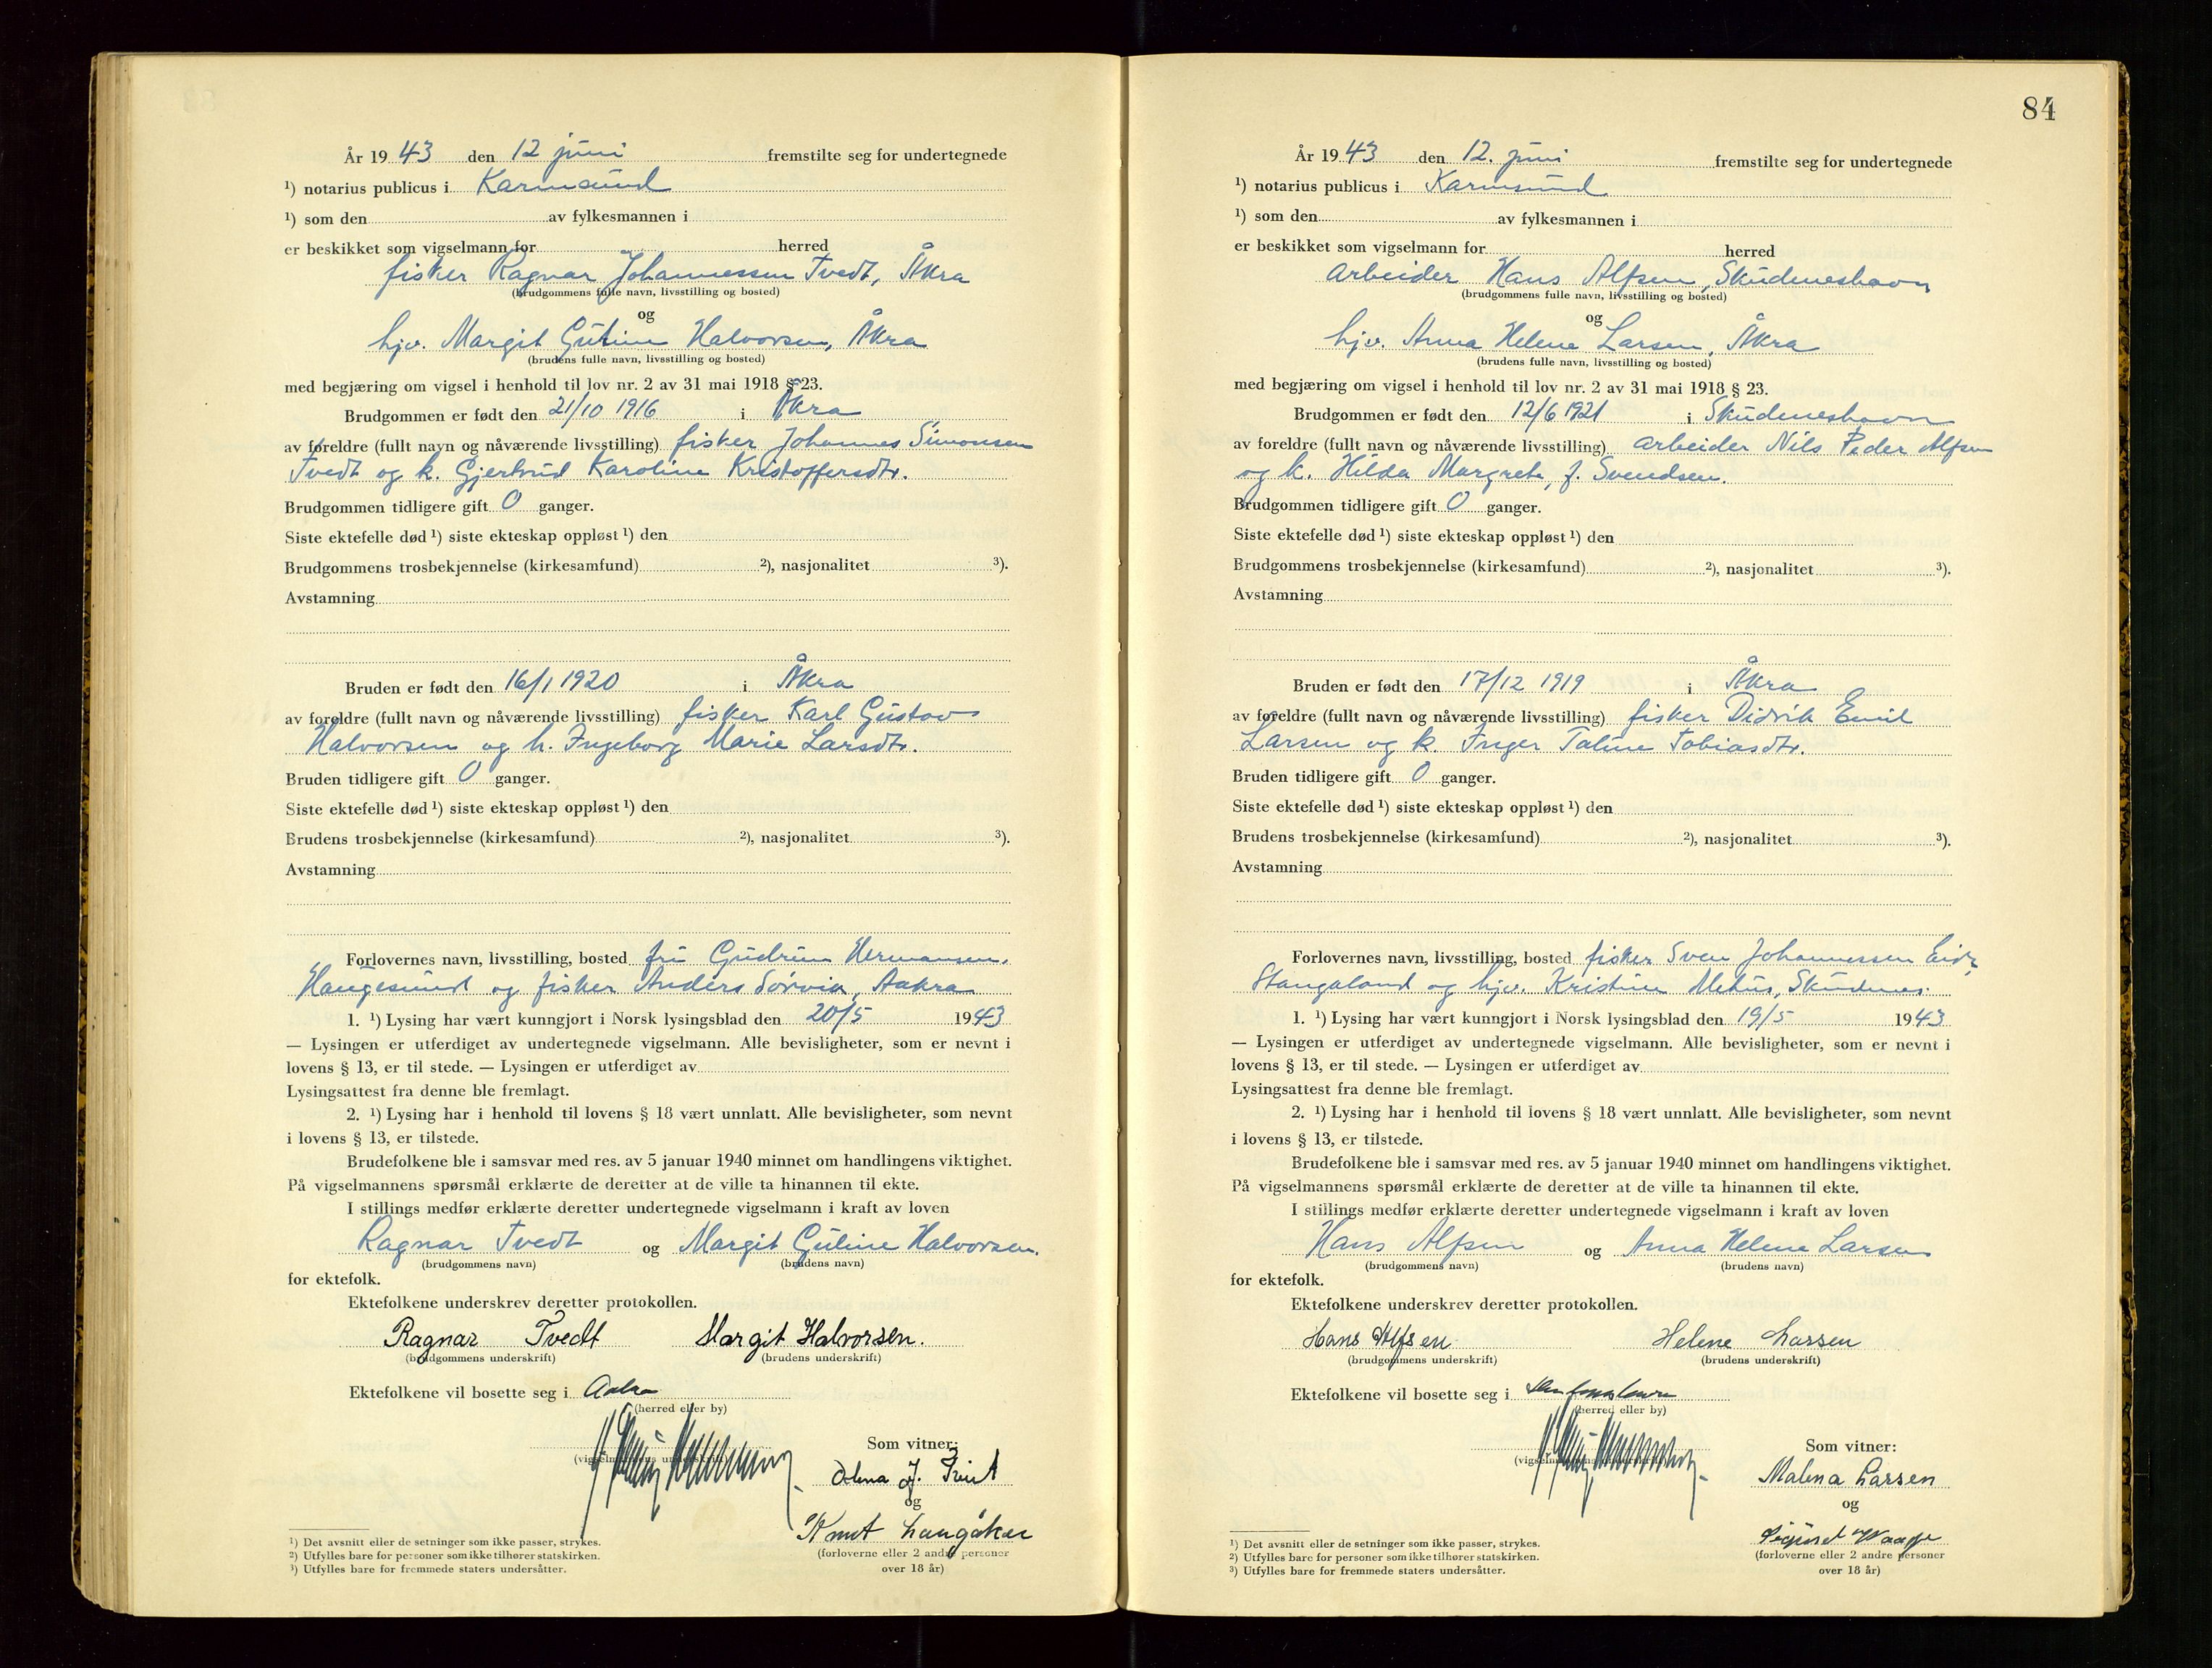 År 1943 den 12 juni fremstilte seg for undertegnede
¹) notarius publicus i Karmsund
¹) som den av fylkesmannen i
er beskikket som vigselmann for herred
fisker Ragnar Johannessen Tvedt, Åkra
(brudgommens fulle navn, livsstilling og bosted)
og
hjv. Margit Guline Halvorsen, Åkra
(brudens fulle navn, livsstilling og bosted)
med begjæring om vigsel i henhold til lov nr. 2 av 31 mai 1918 § 23.
Brudgommen er født den 21/10 1916 i Åkra
av foreldre (fullt navn og nåværende livsstilling) fisker Johannes Simonsen
Tvedt og k. Gjertrud Karoline Kristoffersdtr.
Brudgommen tidligere gift 0 ganger.
Siste ektefelle død ¹) siste ekteskap oppløst ¹) den
Brudgommens trosbekjennelse (kirkesamfund) ²), nasjonalitet ³).
Avstamning
Bruden er født den 16/1 1920 i Åkra
av foreldre (fullt navn og nåværende livsstilling) fisker Karl Gustav
Halvorsen og h. Ingeborg Marie Larsdtr.
Bruden tidligere gift 0 ganger.
Siste ektefelle død ¹) siste ekteskap oppløst ¹) den
Brudens trosbekjennelse (kirkesamfund) ²), nasjonalitet ³).
Avstamning
Forlovernes navn, livsstilling, bosted fru Gudrun Hermansen,
Haugesund og fisker Anders Sørvik, Aakra
1. ¹) Lysing har vært kunngjort i Norsk lysingsblad den 20/5 1943
— Lysingen er utferdiget av undertegnede vigselmann. Alle bevisligheter, som er nevnt i
lovens § 13, er til stede. — Lysingen er utferdiget av
Lysingsattest fra denne ble fremlagt.
2. ¹) Lysing har i henhold til lovens § 18 vært unnlatt. Alle bevisligheter, som nevnt
i lovens § 13, er tilstede.
Brudefolkene ble i samsvar med res. av 5 januar 1940 minnet om handlingens viktighet.
På vigselmannens spørsmål erklærte de deretter at de ville ta hinannen til ekte.
I stillings medfør erklærte deretter undertegnede vigselmann i kraft av loven
Ragnar Tvedt og Margit Guline Halvorsen.
(brudgommens navn) (brudens navn)
for ektefolk.
Ektefolkene underskrev deretter protokollen.
Ragnar Tvedt Margit Halvorsen.
(brudgommens underskrift) (brudens underskrift)
Ektefolkene vil bosette seg i Aakra
(herred eller by)
Som vitner:
(vigselmannens underskrift)
J.
og
Knut Langåker
(forloverne eller 2 andre personer
over 18 år)
¹) Det avsnitt eller de setninger som ikke passer, strykes.
²) Utfylles bare for personer som ikke tilhører statskirken.
³) Utfylles bare for fremmede staters undersåtter.
84
År 1943 den 12. juni fremstilte seg for undertegnede
¹) notarius publicus i Karmsund
¹) som den av fylkesmannen i
er beskikket som vigselmann for herred
arbeider Hans Alfsen, Skudeneshavn
(brudgommens fulle navn, livsstilling og bosted)
og
hjv. Anna Helene Larsen, Åkra
(brudens fulle navn, livsstilling og bosted)
med begjæring om vigsel i henhold til lov nr. 2 av 31 mai 1918 § 23.
Brudgommen er født den 12/6 1921 i Skudeneshavn
av foreldre (fullt navn og nåværende livsstilling) arbeider Nils Peder Alfsen
og k. Hilda Margrete, f. Svendsen.
Brudgommen tidligere gift 0 ganger.
Siste ektefelle død ¹) siste ekteskap oppløst ¹) den
Brudgommens trosbekjennelse (kirkesamfund) ²), nasjonalitet ³).
Avstamning
Bruden er født den 17/12 1919 i Åkra
av foreldre (fullt navn og nåværende livsstilling) fisker Didrik Emil
Larsen og k. Inger Taline Tobiasdtr.
Bruden tidligere gift 0 ganger.
Siste ektefelle død ¹) siste ekteskap oppløst ¹) den
Brudens trosbekjennelse (kirkesamfund) ²), nasjonalitet ³).
Avstamning
Forlovernes navn, livsstilling, bosted fisker Sven Johannessen Eide,
Stangaland og hjv. Kristine Mehus, Skudenes.
1. ¹) Lysing har vært kunngjort i Norsk lysingsblad den 19/5 1943
— Lysingen er utferdiget av undertegnede vigselmann. Alle bevisligheter, som er nevnt i
lovens § 13, er til stede. — Lysingen er utferdiget av
Lysingsattest fra denne ble fremlagt.
2. ¹) Lysing har i henhold til lovens § 18 vært unnlatt. Alle bevisligheter, som nevnt
i lovens § 13, er tilstede.
Brudefolkene ble i samsvar med res. av 5 januar 1940 minnet om handlingens viktighet.
På vigselmannens spørsmål erklærte de deretter at de ville ta hinannen til ekte.
I stillings medfør erklærte deretter undertegnede vigselmann i kraft av loven
Hans Alfsen og Anna Helene Larsen
(brudgommens navn) (brudens navn)
for ektefolk.
Ektefolkene underskrev deretter protokollen.
Hans Alfsen Helene Larsen
(brudgommens underskrift) (brudens underskrift)
Ektefolkene vil bosette seg i
(herred eller by)
Som vitner:
(vigselmannens underskrift)
Malena Larsen
og
Sigurd Waage
(forloverne eller 2 andre personer
over 18 år)
¹) Det avsnitt eller de setninger som ikke passer, strykes.
²) Utfylles bare for personer som ikke tilhører statskirken.
³) Utfylles bare for fremmede staters undersåtter.